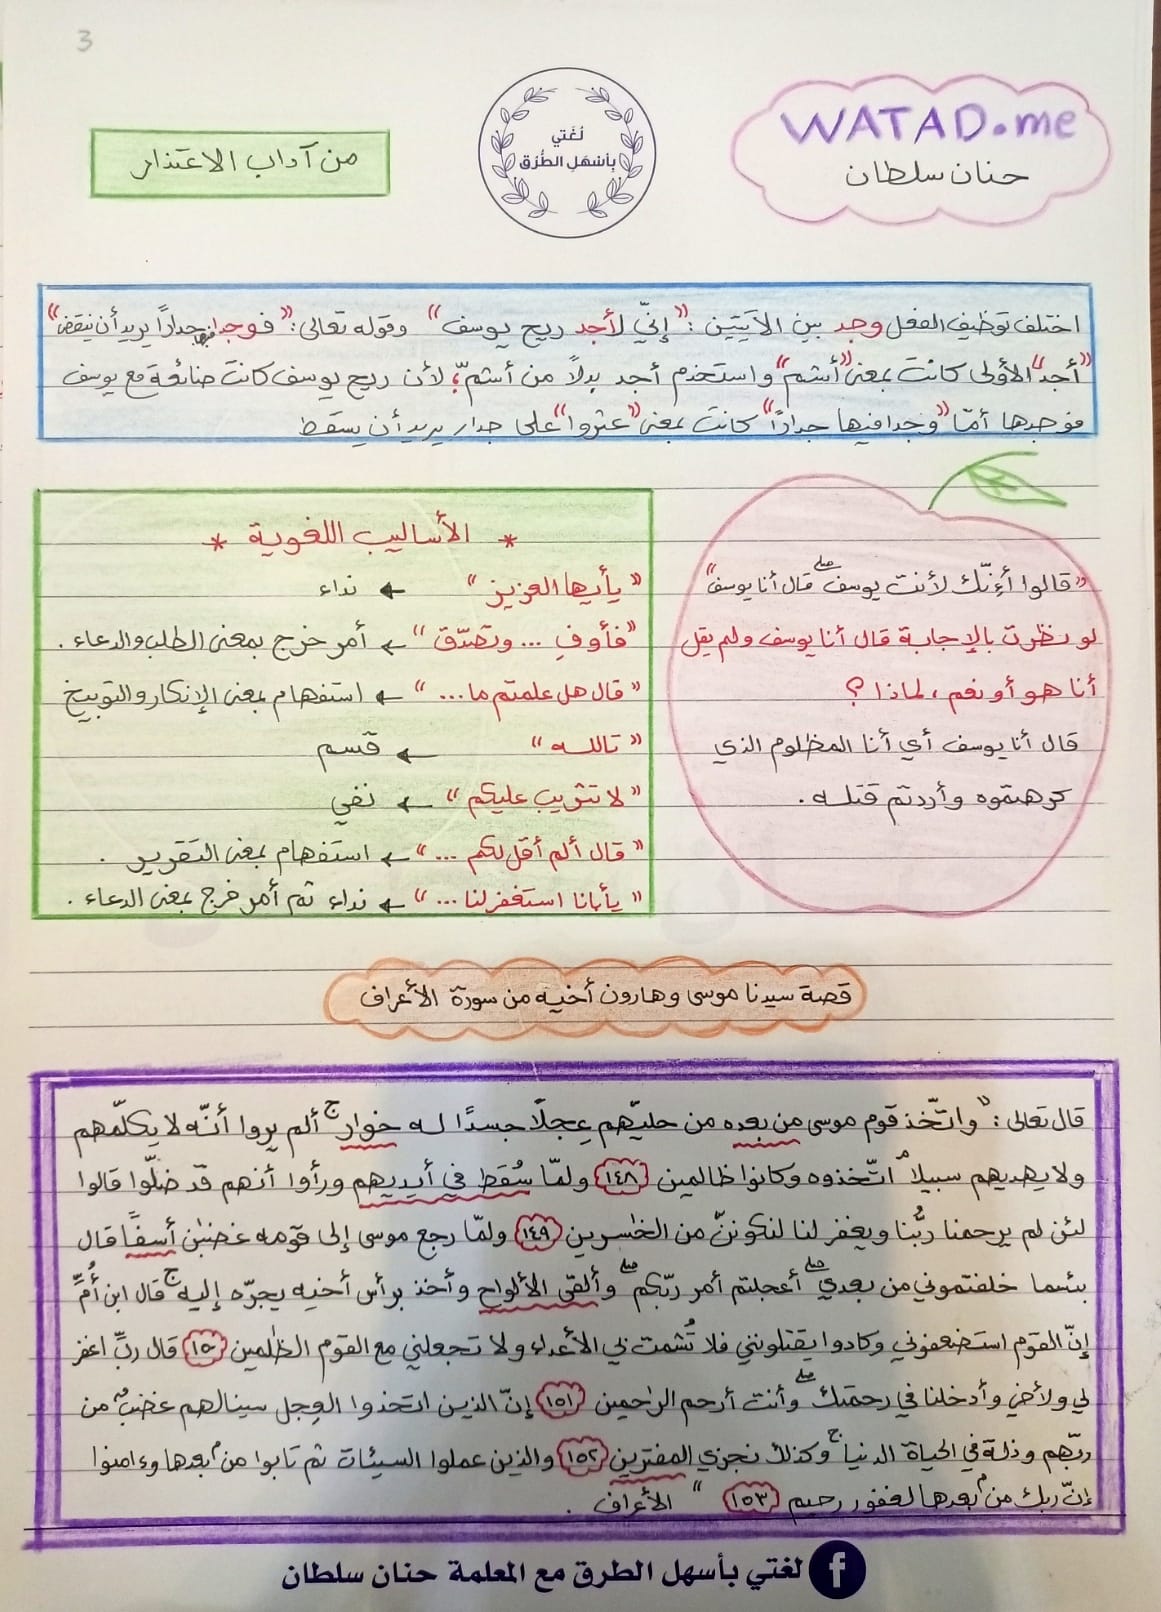 3
WATAD.me
حنان سلطان
لُغَتي
بِأسْهَلِ الطُّرُق
من آداب الاعتذار
اختلف توظيف الفعل وجد بين الآيتين : "إنّي لأجد ريح يوسف" وقوله تعالى: "فوجدا فيها جدارًا يريد أن ينقض"
"أجد" الأولى كانت بمعنى "أشم" واستخدم أجد بدلاً من أشمّ؛ لأن ريح يوسف كانت ضائعة مع يوسف
فوجدها أمّا "وجدا فيها جدارًا" كانت بمعنى "عثروا" على جدار يريد أن يسقط
"قالوا أءِنّك لأنت يوسف صلے قال أنا يوسف"
لو نظرت بالإجابة قال أنا يوسف ولم يقل
أنا هو أو نعم ، لماذا ؟
قال أنا يوسف أي أنا المظلوم الذي
كرهتموه وأردتم قتله .
* الأساليب اللغوية *
"يأيها العزيز" ← نداء
"فأوفِ ... وتصدّق" ← أمر خرج بمعنى الطلب والدعاء .
"قال هل علمتم ما ..." ← استفهام بمعنى الإنكار والتوبيخ
"تالله" ← قسم
"لا تثريب عليكم" ← نفي
"قال ألم أقل لكم ..." ← استفهام بمعنى التقرير .
"يأبانا استغفر لنا ..." ← نداء ثم أمر خرج بمعنى الدعاء .
قصة سيدنا موسى وهارون أخيه من سورة الأعراف
قال تعالى : "واتّخذ قوم موسى من بعده من حليّهم عِجلًا جسدًا له خوار ج ألم يروا أنّه لا يكلّمهم
ولا يهديهم سبيلاً م اتّخذوه وكانوا ظالمين ١٤٨ ولمّا سُقط في أيديهم ورأوا أنهم قد ضلّوا قالوا
لئن لم يرحمنا ربُّنا ويغفر لنا لنكوننّ من الخٰسرين ١٤٩ ولمّا رجع موسى إلى قومه غضبٰن أسفًا قال
بئسما خلفتموني من بعدي صلے أعجلتم أمر ربّكم صلے وألقى الألواح وأخذ برأس أخيه يجرّه إليه ج قال ابن أُمَّ
إنّ القوم استضعفوني وكادوا يقتلونني فلا تُشمت بي الأعداء ولا تجعلني مع القوم الظّٰلمين ١٥٠ قال ربّ اغفر
لي ولأخي وأدخلنا في رحمتك صلے وأنت أرحم الرٰحمين ١٥١ إنّ الذين اتخذوا العِجل سينالهم غضبٌ من
ربّهم وذلة في الحياة الدنيا ج وكذلك نجزي المفترين ١٥٢ والذين عملوا السيئات ثم تابوا من بعدها وءامنوا
إنّ ربك من بعدها لغفور رحيم ١٥٣" الأعراف .
لغتي بأسهل الطرق مع المعلمة حنان سلطان